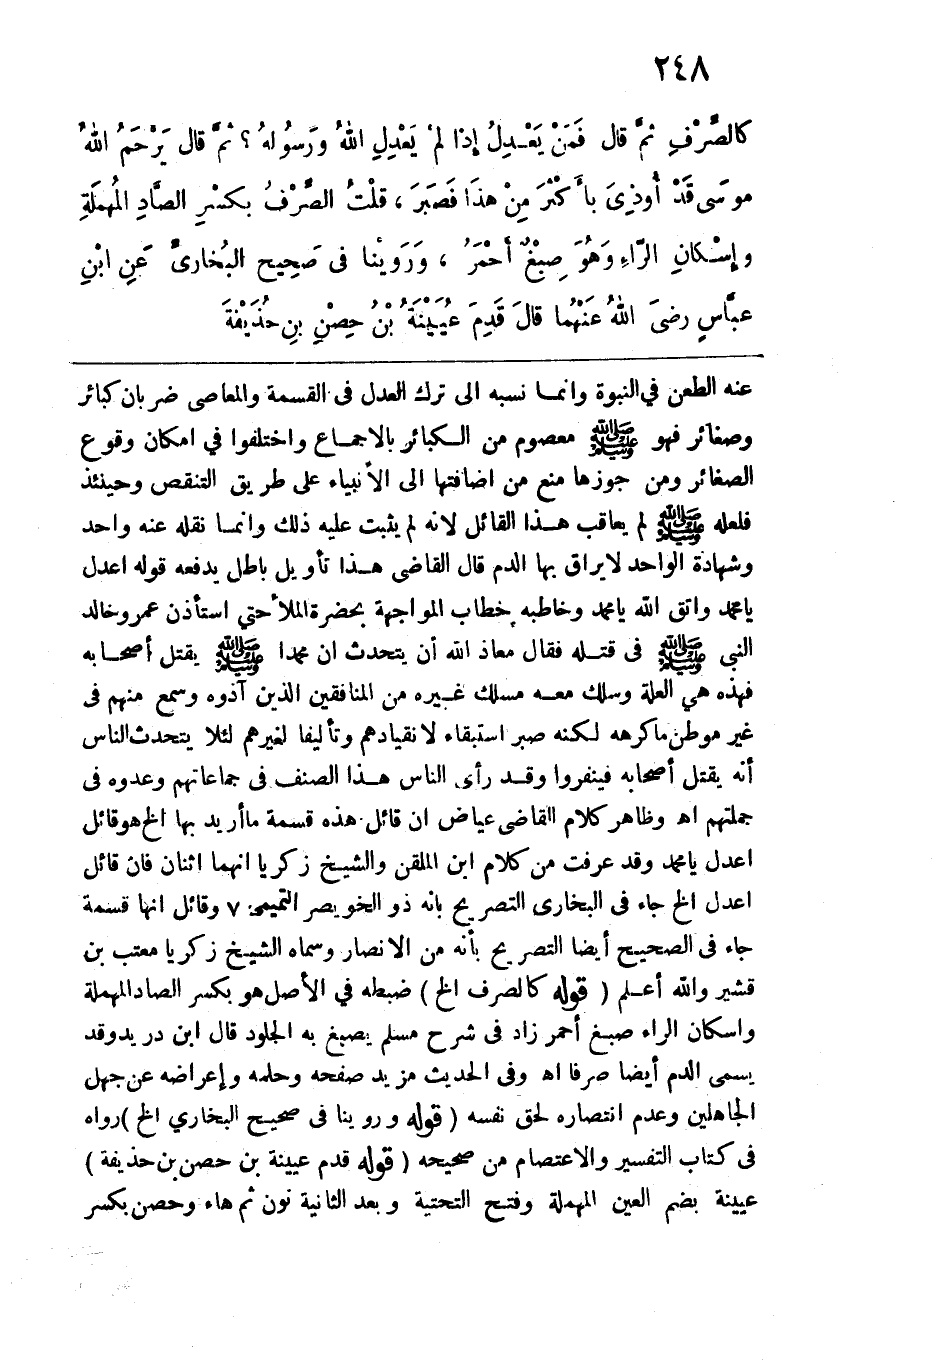 ٢٤٨
كالصَّرْفِ ثمَّ قال فَمَنْ يَعْدِلُ إذا لمْ يَعْدِلِ اللهُ ورَسُولهُ ؟ ثمَّ قال يَرْحَمُ اللهُ
موسَى قَدْ أُوذِىَ بأَكْثَرَ مِنْ هذَا فَصَبَرَ ، قلْتُ الصَّرْفُ بكَسْرِ الصَّادِ المُهمَلَةِ
وإسْكانِ الرَّاءِ وَهُوَ صِبْغٌ أَحْمَرُ ، وَرَوَيْنا فى صَحِيح البُخارىِّ عَنِ ابْنِ
عبَّاسٍ رضىَ اللهُ عَنْهُما قالَ قَدِمَ عُيَيْنَةُ بْنُ حِصْنِ بنِ حُذَيْفَةَ
عنه الطعن في النبوة وانما نسبه الى ترك العدل فى القسمة والمعاصى ضربان كبائر
وصغائر فهو ﷺ معصوم من الكبائر بالاجماع واختلفوا في امكان وقوع
الصغائر ومن جوزها منع من اضافتها الى الأنبياء على طريق التنقص وحينئذ
فلعله ﷺ لم يعاقب هذا القائل لانه لم يثبت عليه ذلك وانما نقله عنه واحد
وشهادة الواحد لايراق بها الدم قال القاضى هذا تأويل باطل يدفعه قوله اعدل
يامحمد واتق الله يامحمد وخاطبه خطاب المواجهة بحضرة الملأ حتي استأذن عمر وخالد
النبي ﷺ فى قتله فقال معاذ الله أن يتحدث ان محمدا ﷺ يقتل أصحابه
فهذه هي العلة وسلك معه مسلك غيره من المنافقين الذين آذوه وسمع منهم فى
غير موطن ماكرهه لكنه صبر استبقاء لانقيادهم وتأليفا لغيرهم لئلا يتحدث الناس
أنه يقتل أصحابه فينفروا وقد رأى الناس هذا الصنف فى جماعاتهم وعدوه فى
جملتهم اه وظاهر كلام القاضى عياض ان قائل هذه قسمة ماأريد بها الخ هو قائل
اعدل يامحمد وقد عرفت من كلام ابن الملقن والشيخ زكريا انهما اثنان فان قائل
اعدل الخ جاء فى البخارى التصريح بانه ذو الخويصر التميمى ٧ وقائل انها قسمة
جاء فى الصحيح أيضا التصريح بأنه من الانصار وسماه الشيخ زكريا معتب بن
قشير والله أعلم ( قوله كالصرف الخ ) ضبطه في الأصل هو بكسر الصاد المهملة
واسكان الراء صبغ أحمر زاد فى شرح مسلم يصبغ به الجلود قال ابن دريد وقد
يسمى الدم أيضا صرفا اه وفى الحديث مزيد صفحه وحلمه وإعراضه عن جهل
الجاهلين وعدم انتصاره لحق نفسه ( قوله وروينا فى صحيح البخاري الخ ) رواه
فى كتاب التفسير والاعتصام من صحيحه ( قوله قدم عيينة بن حصن بن حذيفة )
عيينة بضم العين المهملة وفتح التحتية وبعد الثانية نون ثم هاء وحصن بكسر